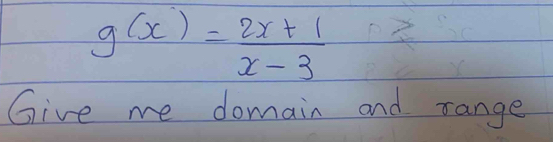 g(x) = 2x + 1 / x - 3
Give me domain and range